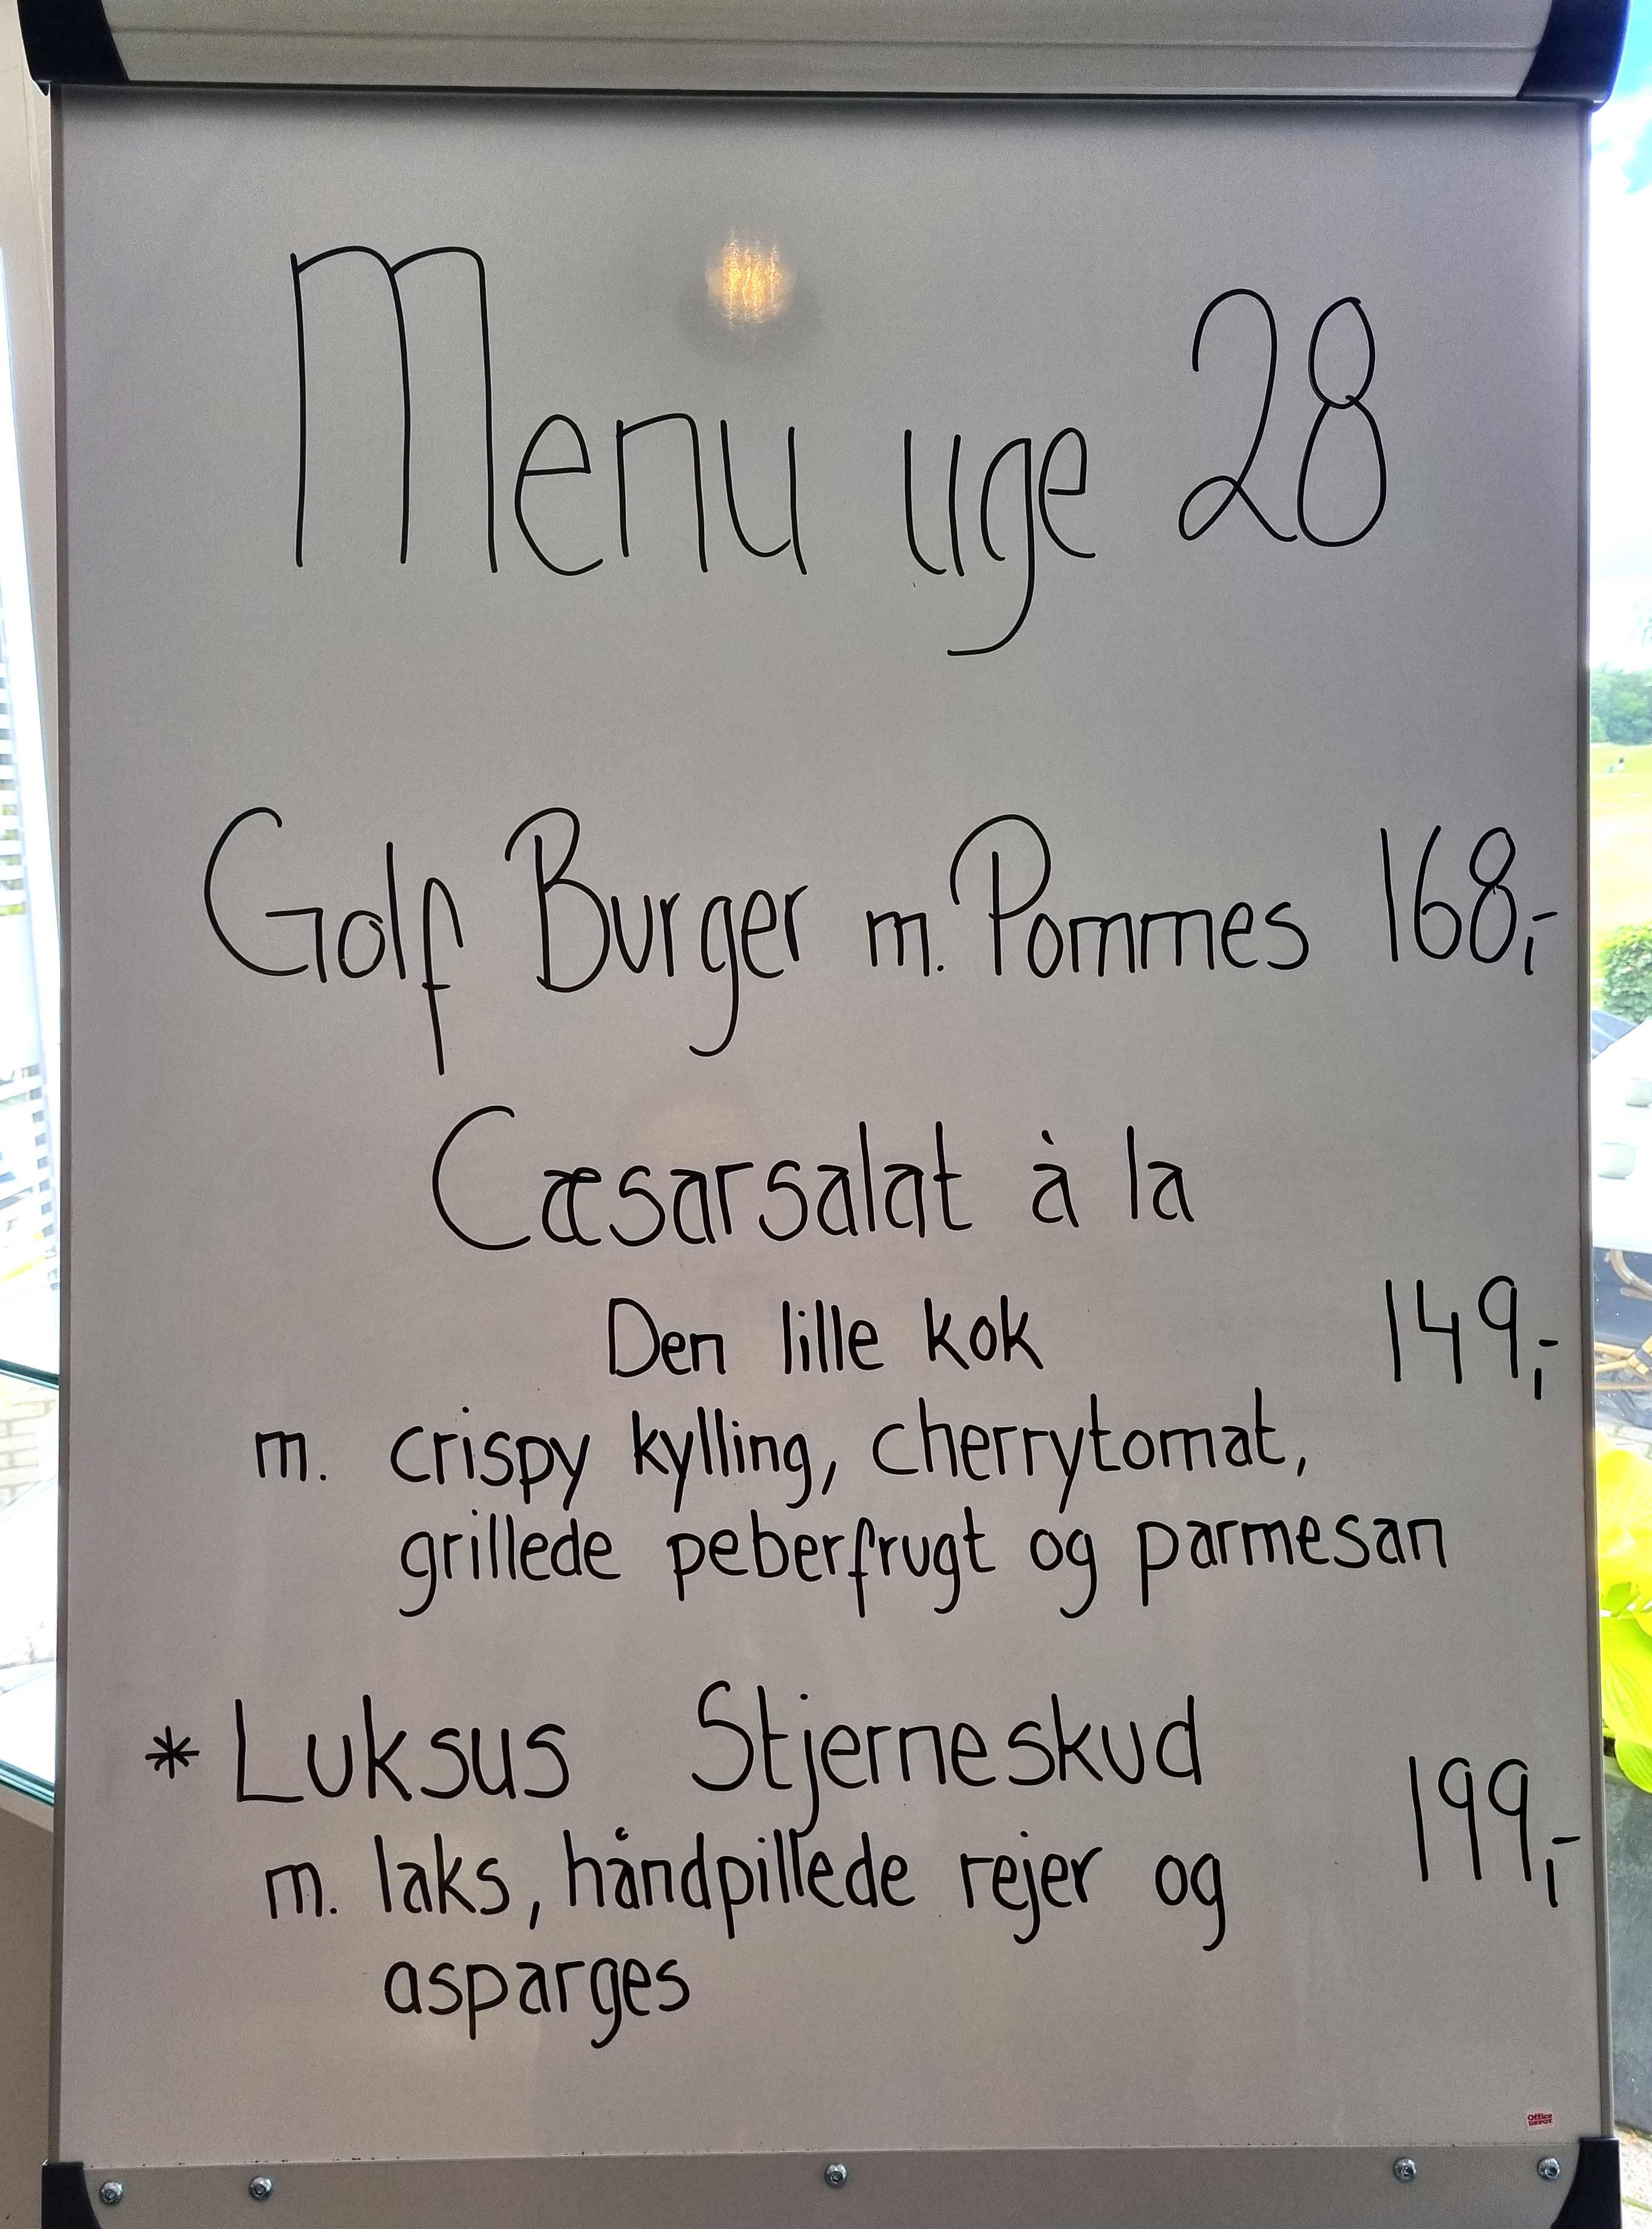 Menu uge 28
Golf Burger m. Pommes 168,-
Cæsarsalat à la
Den lille kok 149,-
m. crispy kylling, cherrytomat,
grillede peberfrugt og parmesan
* Luksus Stjerneskud
199,-
m. laks, håndpillede rejer og
asparges
Office
DEPOT